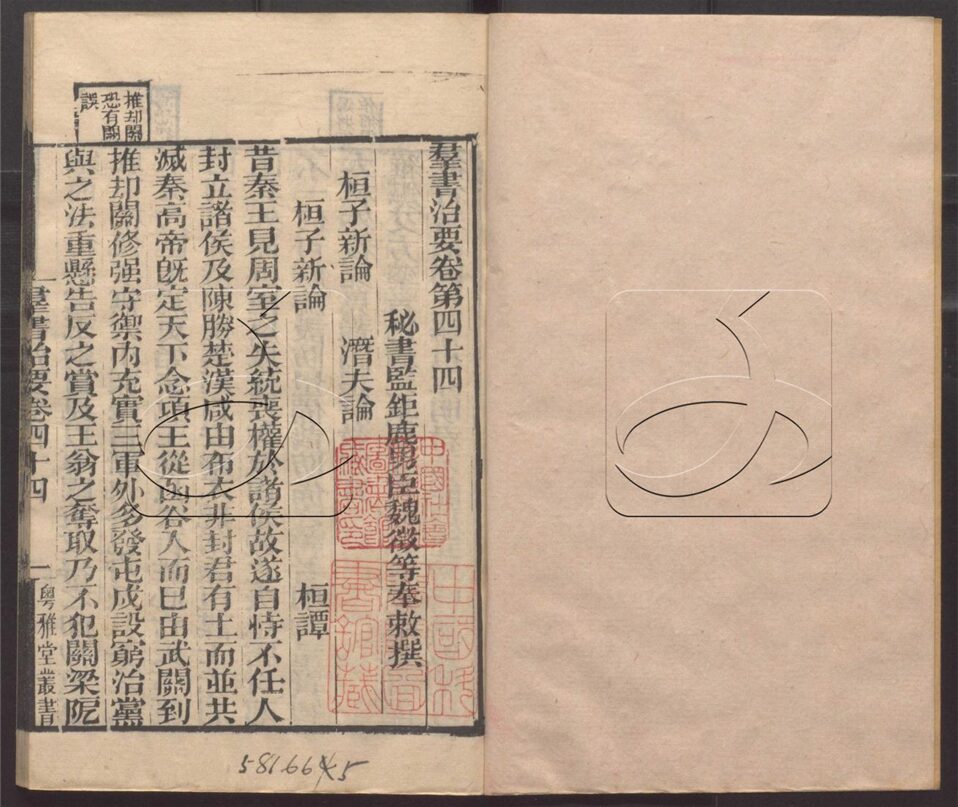 羣書治要卷第四十四
秘書監鉅鹿男臣魏徵等奉敕撰
桓子新論　潛夫論
桓子新論　桓譚
昔秦王見周室之失統喪權於諸侯故遂自恃不任人
封立諸侯及陳勝楚漢咸由布衣非封君有土而並共
滅秦高帝旣定天下念項王從函谷入而已由武關到
推却關修强守禦內充實三軍外多發屯戍設窮治黨
與之法重懸告反之賞及王翁之奪取乃不犯關梁阸
推却關
恐有闕
誤
羣書治要卷四十四
一
粤雅堂叢書
書館藏
5816645